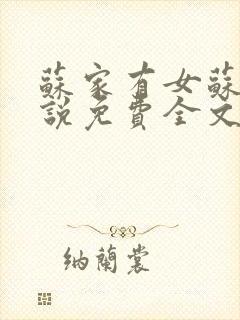 蘇家有女蘇
說免費全文
納蘭裳